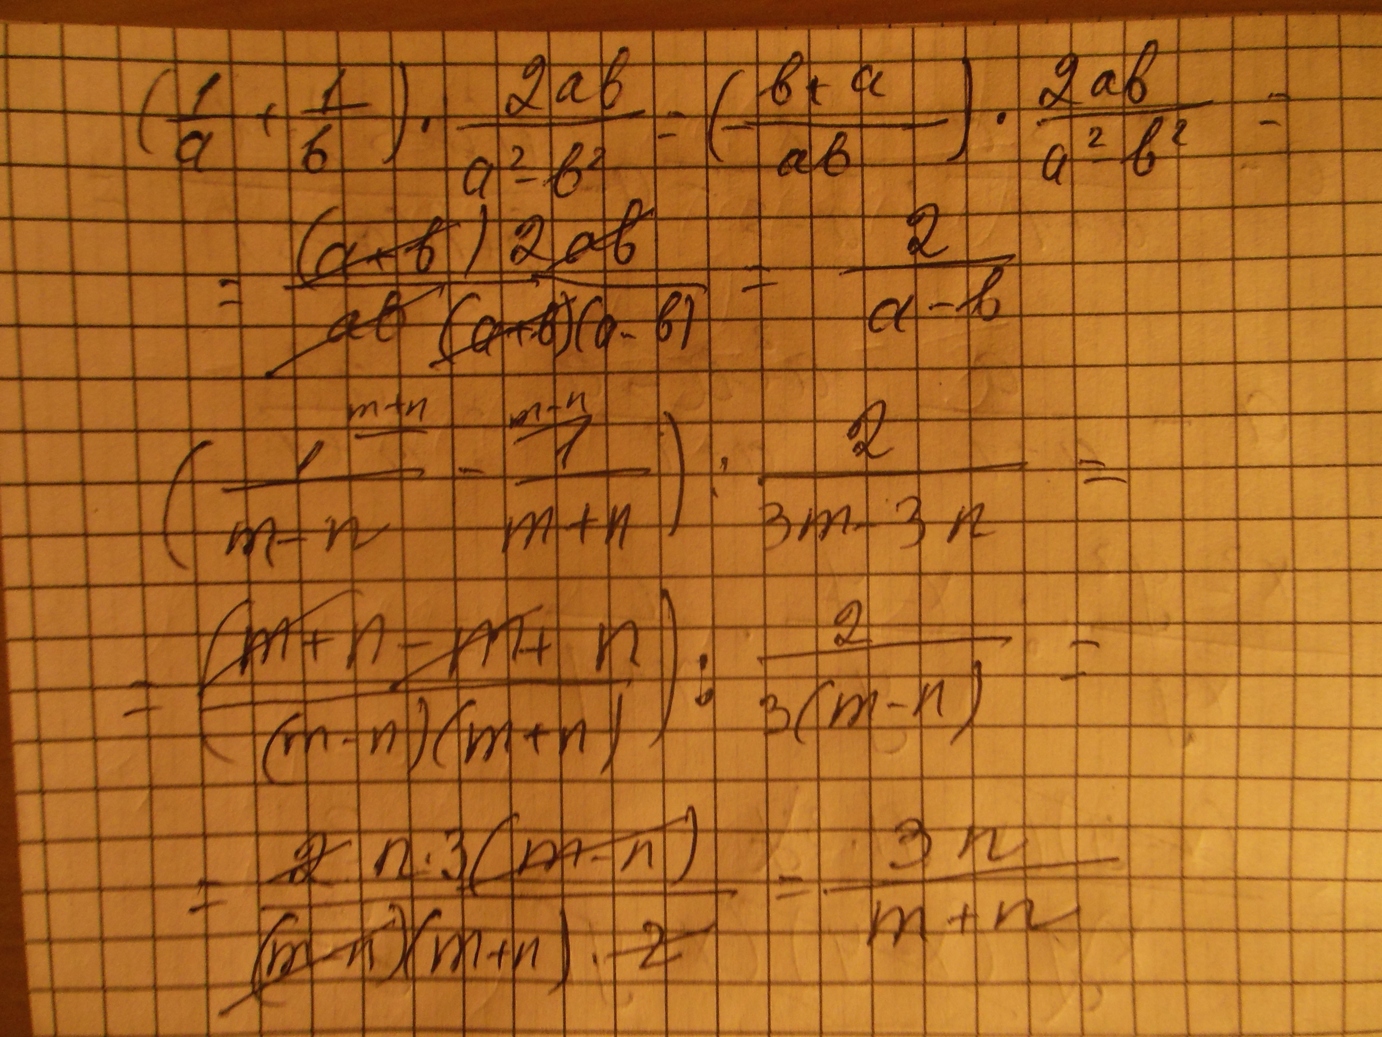 (1/a + 1/b) · 2ab/(a² - b²) = ((b + a)/(ab)) · 2ab/(a² - b²) =
= ((a + b) 2ab)/(ab (a + b)(a - b)) = 2/(a - b)
(1/(m - n) ^(m+n) - ^(m-n) 1/(m + n)) : 2/(3m - 3n) =
= ((m + n - m + n)/((m - n)(m + n))) : 2/(3(m - n)) =
= (2 n · 3(m - n))/((m - n)(m + n) · 2) = 3n/(m + n)